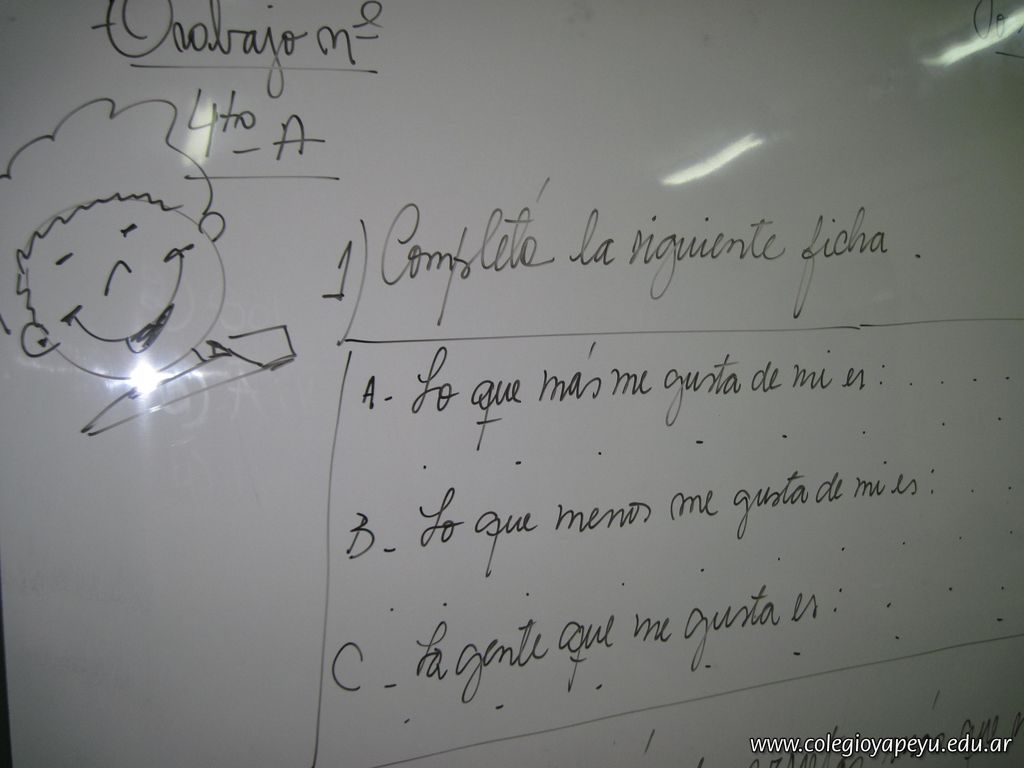 Trabajo nº
4to - A
1) Completá la siguiente ficha.
A- Lo que más me gusta de mi es: . . . .
. . . . . . . .
B- Lo que menos me gusta de mi es: . .
. . . . . . . .
C- La gente que me gusta es: . . .
. . . . . . .
más que
www.colegioyapeyu.edu.ar